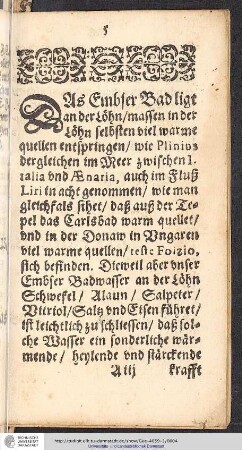 5
DAs Embser Bad ligt
an der Löhn/massen in der
Löhn selbsten viel warme
quellen entspringen/ wie Plinius
dergleichen im Meer zwischen I-
talia vnd Ænaria, auch im Fluß
Liri in acht genommen/ wie man
gleichfals sihet/ daß auß der Te-
pel das Carlsbad warm quellet/
vnd in der Donaw in Vngaren
viel warme quellen/ teste Foizio,
sich befinden. Dieweil aber vnser
Embser Badwasser an der Löhn
Schwefel/ Alaun/ Salpeter/
Vitriol/ Saltz vnd Eisen führet/
ist leichtlich zu schliessen/ daß sol-
che Wasser ein sonderliche wär-
mende/ heylende vnd stärckende
A iij krafft